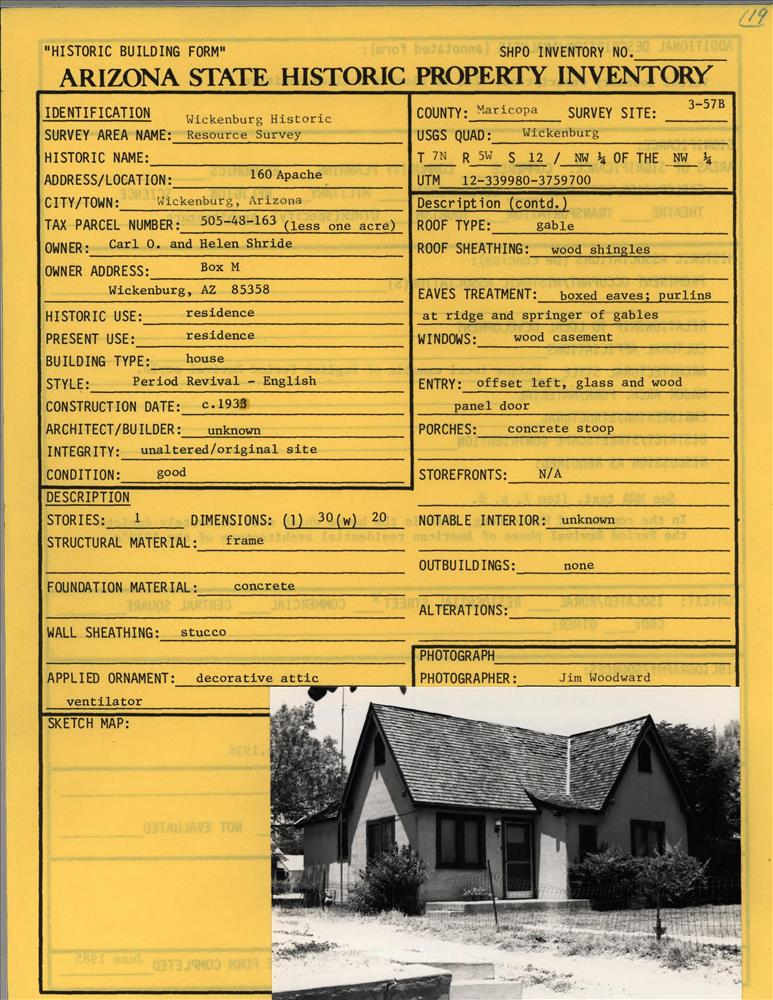 119
"HISTORIC BUILDING FORM" SHPO INVENTORY NO.
ARIZONA STATE HISTORIC PROPERTY INVENTORY
IDENTIFICATION
SURVEY AREA NAME: Wickenburg Historic
Resource Survey
HISTORIC NAME:
ADDRESS/LOCATION: 160 Apache
CITY/TOWN: Wickenburg, Arizona
TAX PARCEL NUMBER: 505-48-163 (less one acre)
OWNER: Carl O. and Helen Shride
OWNER ADDRESS: Box M
Wickenburg, AZ 85358
HISTORIC USE: residence
PRESENT USE: residence
BUILDING TYPE: house
STYLE: Period Revival - English
CONSTRUCTION DATE: c.1933
ARCHITECT/BUILDER: unknown
INTEGRITY: unaltered/original site
CONDITION: good
COUNTY: Maricopa SURVEY SITE: 3-57B
USGS QUAD: Wickenburg
T 7N R 5W S 12 / NW ¼ OF THE NW ¼
UTM 12-339980-3759700
Description (contd.)
ROOF TYPE: gable
ROOF SHEATHING: wood shingles
EAVES TREATMENT: boxed eaves; purlins
at ridge and springer of gables
WINDOWS: wood casement
ENTRY: offset left, glass and wood
panel door
PORCHES: concrete stoop
STOREFRONTS: N/A
DESCRIPTION
STORIES: 1 DIMENSIONS: (l) 30 (w) 20
STRUCTURAL MATERIAL: frame
FOUNDATION MATERIAL: concrete
WALL SHEATHING: stucco
APPLIED ORNAMENT: decorative attic
ventilator
NOTABLE INTERIOR: unknown
OUTBUILDINGS: none
ALTERATIONS:
PHOTOGRAPH
PHOTOGRAPHER: Jim Woodward
SKETCH MAP: